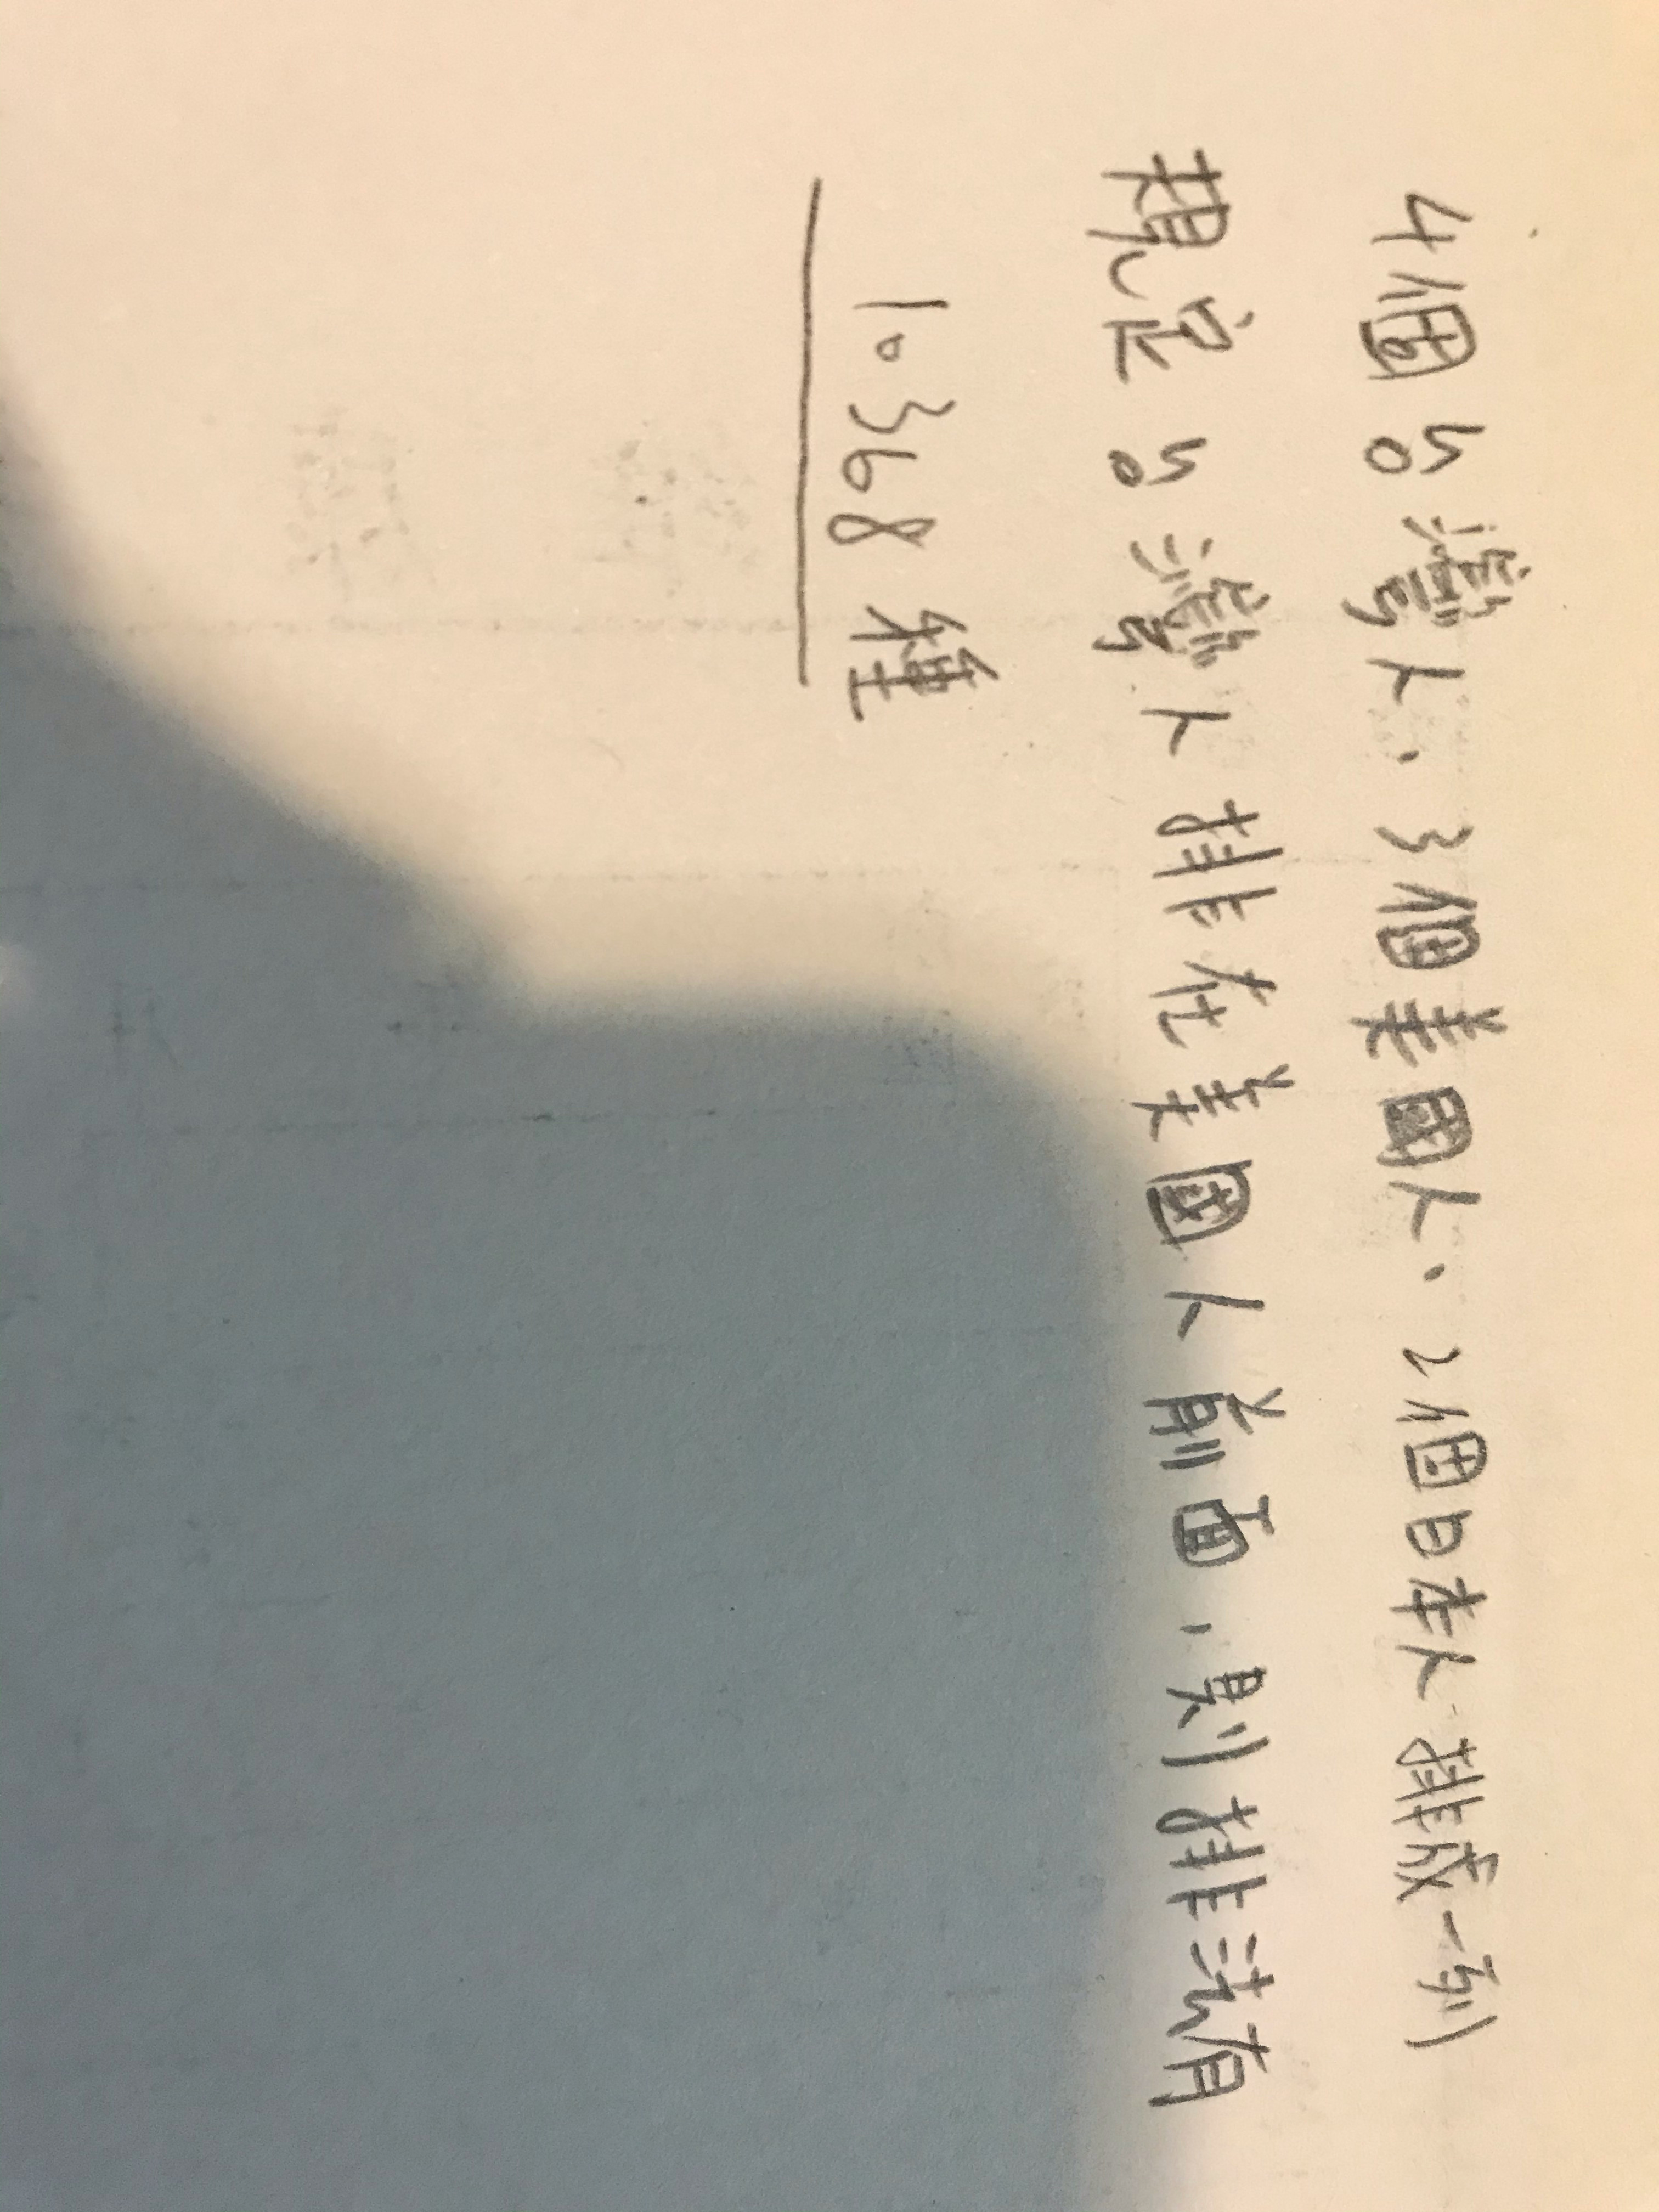 4個台灣人、3個美國人、2個日本人排成一列
規定台灣人排在美國人前面,則排法有
10368種